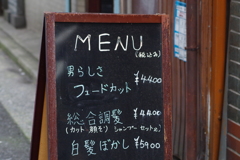 MENU
(税込み)
男らしさ
フェードカット ¥4400
総合調髪 ¥4400
(カット・顔そり シャンプー セット込)
白髪ぼかし ¥5900